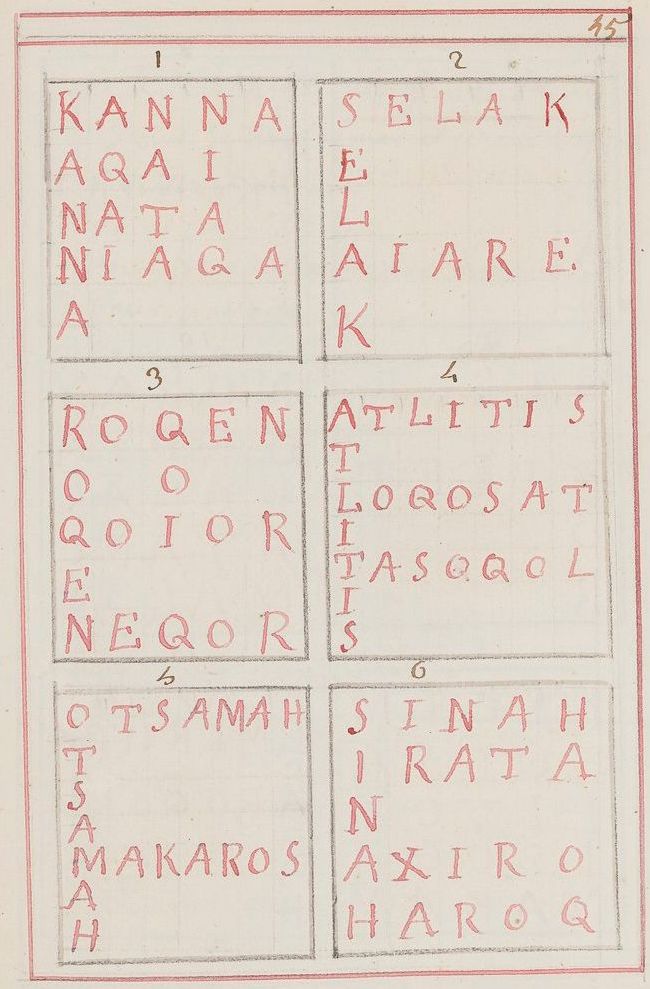 45
1
KANNA
AQAI
NATA
NIAQA
A
2
SELAK
E
L
AIARE
K
3
ROQEN
O O
QOIOR
E
NEQOR
4
ATLITIS
T
LOQOSAT
I
TASQQOL
I
S
5
OTSAMAH
T
S
A
MAKAROS
A
H
6
SINAH
IRATA
N
AXIRO
HAROQ